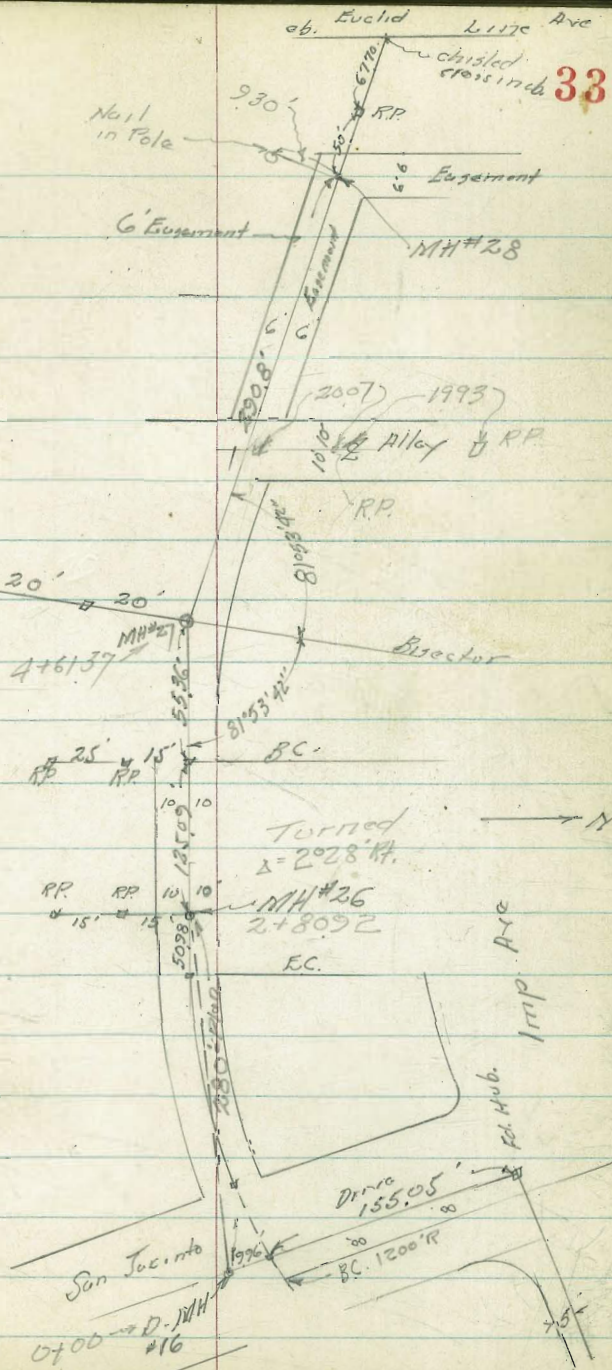 Euclid Line Ave
chisled
cross in cb.
33
67.70
R.P.
930'
50'
Nail
in Pole
6' 6'
Easement
6' Easement
MH#28
Easement
6' 6'
290.8'
2007
1993
10' 10'
Alley
R.P.
R.P.
81°53'42"
20' 20'
MH#27
4+6137
Bisector
55.36'
81°53'42"
25' 15'
B.C.
RP RP.
10 10
125.09'
N
Turned
Δ=2°28' Rt.
R.P. R.P.
10 10'
MH#26
15' 15'
2+8092
50.98
E.C.
Imp. Ave
280' Plan
Fd. Hub.
Drive
155.05'
8 8
1996'
B.C. 1200'R
San Jacinto
0+00 → D-MH
#16